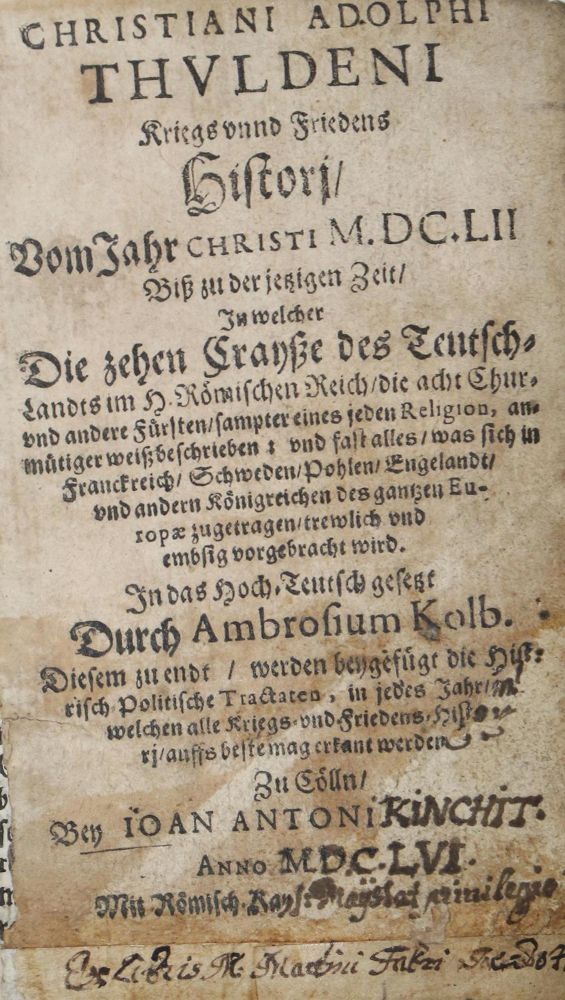 CHRISTIANI ADOLPHI
THVLDENI
Kriegs vnnd Friedens
Histori/
Vom Jahr CHRISTI M.DC.LII
Biß zu der jetzigen Zeit/
In welcher
Die zehen Crayße des Teutsch-
Landts im H. Römischen Reich/die acht Chur-
vnd andere Fürsten/sampter eines jeden Religion, an-
mütiger weiß beschrieben: vnd fast alles/was sich in
Franckreich/Schweden/Pohlen/Engelandt/
vnd andern Königreichen des gantzen Eu-
ropæ zugetragen/trewlich vnd
embsig vorgebracht wird.
In das Hoch-Teutsch gesetzt
Durch Ambrosium Kolb.
Diesem zu endt / werden beygefügt die Hist-
risch-Politische Tractaten, in jedes Jahr/
welchen alle Kriegs-vnd-Friedens-Histo
rj/auffs beste mag erkant werden
Zu Cölln/
Bey IOAN ANTONI KINCHIT.
ANNO MDC.LVI.
Mit Römisch. Kays. Maystat privilegio
Ex Libris M. Martini Fabri